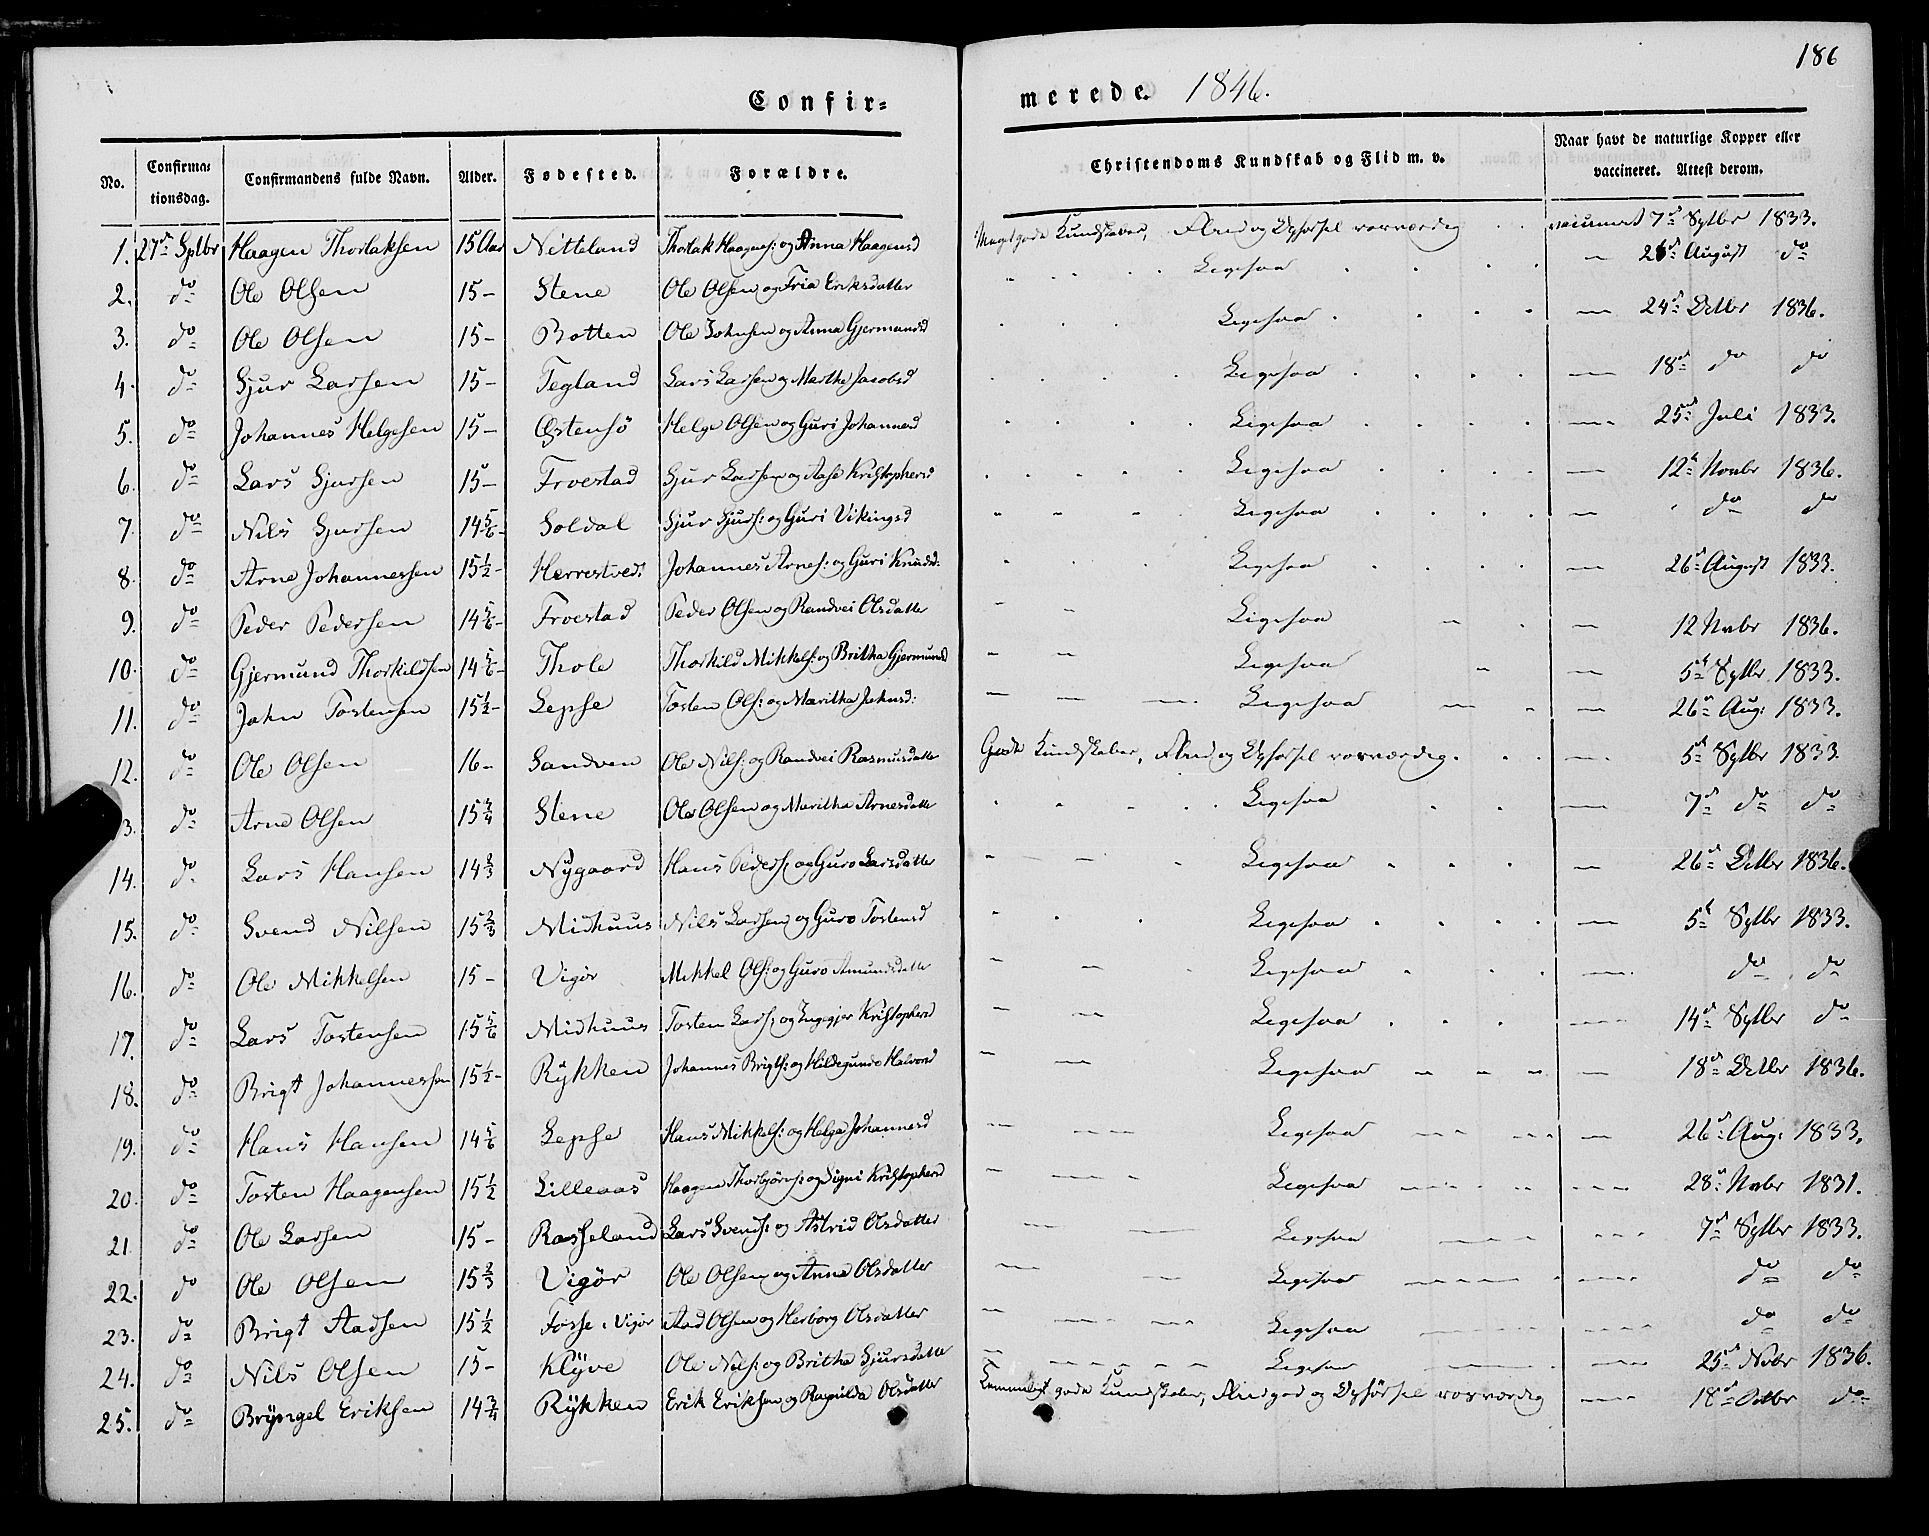 186
Confir-
merede. 1846.
No. Confirmationsdag. Confirmandens fulde Navn. Alder. Fødested. Forældre. Christendoms Kundskab og Flid m. v. Naar havt de naturlige Kopper eller vaccineret. Attest derom.
1. 27de Sptbr Haagen Thorlaksen 15 Aar Nitteland Thorlak Haagens: og Anna Haagensd Meget gode Kundskaber, Flid og Opførsel rosværdig vaccineret 7de Sptbr 1833.
2. do Ole Olsen 15 – Stene Ole Olsen og Fria Eriksdatter Ligesaa – 26de August do
3. do Ole Olsen 15 – Botten Ole Johnsen og Anna Gjermundsd Ligesaa – 24de Octbr 1836.
4. do Sjur Larsen 15 – Tegland Lars Larsen og Martha Jacobsd Ligesaa – 18de do do
5. do Johannes Helgesen 15 – Østensø Helge Olsen og Guri Johannesd Ligesaa – 25de Juli 1833.
6. do Lars Sjursen 15 – Froestad Sjur Larsen og Aase Kristophersd Ligesaa – 12te Novbr 1836.
7. do Nils Sjursen 14 5/6 – Soldal Sjur Sjurs: og Guri Vikingsd Ligesaa – do do
8. do Arne Johannessen 15 1/2 – Herrestvedt Johannes Arnes: og Guri Knudsd: Ligesaa – 26de August 1833.
9. do Peder Pedersen 14 5/6 – Froestad Peder Olsen og Randvei Olsdatter Ligesaa – 12 Nvbr 1836.
10. do Gjermund Thorkildsen 14 5/6 – Thole Thorkild Mikkels: og Britha Gjermundsd Ligesaa – 5te Sptbr. 1833.
11. do John Tostensen 15 1/2 – Lepse Tosten Ols: og Maritha Johnsd: Ligesaa – 26de Aug: 1833.
12. do Ole Olsen 16 – Sandven Ole Nils: og Randvei Rasmusdatter Gode Kundskaber, Flid og Opførsel rosværdig. – 5te Sptbr 1833.
13. do Arne Olsen 15 3/4 Stene Ole Olsen og Maritha Arnesdatter Ligesaa – 7de do do
14. do Lars Hansen 14 2/3 Nygaard Hans Peders: og Guro Larsdatter Ligesaa – 26de Octbr 1836.
15. do Svend Nilsen 15 2/3 Midhuus Nils Larsen og Guro Tostensd Ligesaa – 5te Sptbr 1833.
16. do Ole Mikkelsen 15 – Vigør Mikkel Ols: og Guro Amundsdatter Ligesaa – do do
17. do Lars Tostensen 15 5/6 Midhuus Tosten Lars: og Ingegjer Kristophersd Ligesaa – 14de Sptbr do
18. do Brigt Johannessen 15 1/2 – Rykken Johannes Brigts: og Hildegunde Halvorsd Ligesaa – 18de Octbr 1836.
19. do Hans Hansen 14 5/6 Lepse Hans Mikkels: og Helga Johannesd Ligesaa – 26de Aug: 1833.
20. do Tosten Haagensen 15 1/2 Lilleaas Haagen Thorbjørns: og Signi Kristophersd Ligesaa – 28de Nvbr 1831.
21. do Ole Larsen 15 – Rosseland Lars Svends: og Astrid Olsdatter Ligesaa – 7de Sptbr 1833.
22. do Ole Olsen 15 2/3 Vigør Ole Olsen og Anna Olsdatter Ligesaa – do do
23. do Brigt Aadsen 15 1/2 Fosse i Vigør Aad Olsen og Herborg Olsdatter Ligesaa – do do
24. do Nils Olsen 15 – Klyve Ole Nils: og Britha Sjursdatter Ligesaa – 25de Nvbr 1836.
25. do Bryngel Eriksen 14 3/4 Rykken Erik Eriksen og Ragnilda Olsdatter Temmeligt gode Kundskaber, Flid god og Opførsel rosværdig – 18de Octbr do